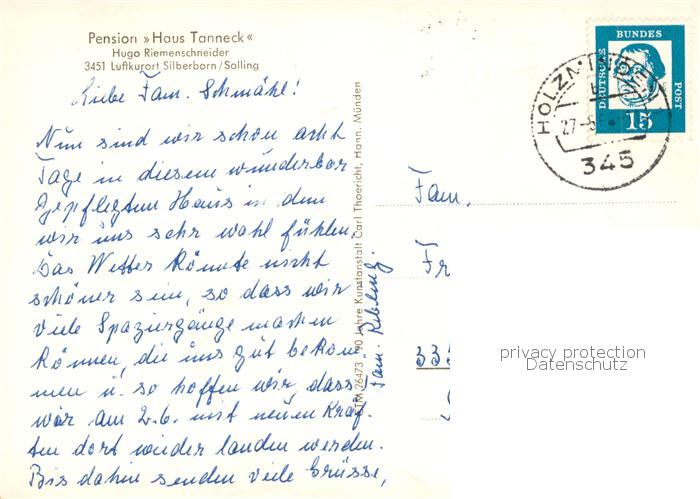 Pension »Haus Tanneck«
Hugo Riemenschneider
3451 Luftkurort Silberborn/Solling
Liebe Fam. Schmähl!
Nun sind wir schon acht
Tage in diesem wunderbar
gepflegten Haus in dem
wir uns sehr wohl fühlen.
Das Wetter könnte nicht
schöner sein, so dass wir
viele Spaziergänge machen
können, die uns gut bekom-
men u. so hoffen wir, dass
wir am 2.6. mit neuen Kräf-
ten dort wieder landen werden.
Bis dahin senden viele Grüsse,
Fam.
90 Jahre Kunstanstalt Carl Thoericht, Hann. Münden
26473
DEUTSCHE
BUNDES
POST
15
HOLZMINDEN
345
Fam.
Fr
privacy protection
Datenschutz